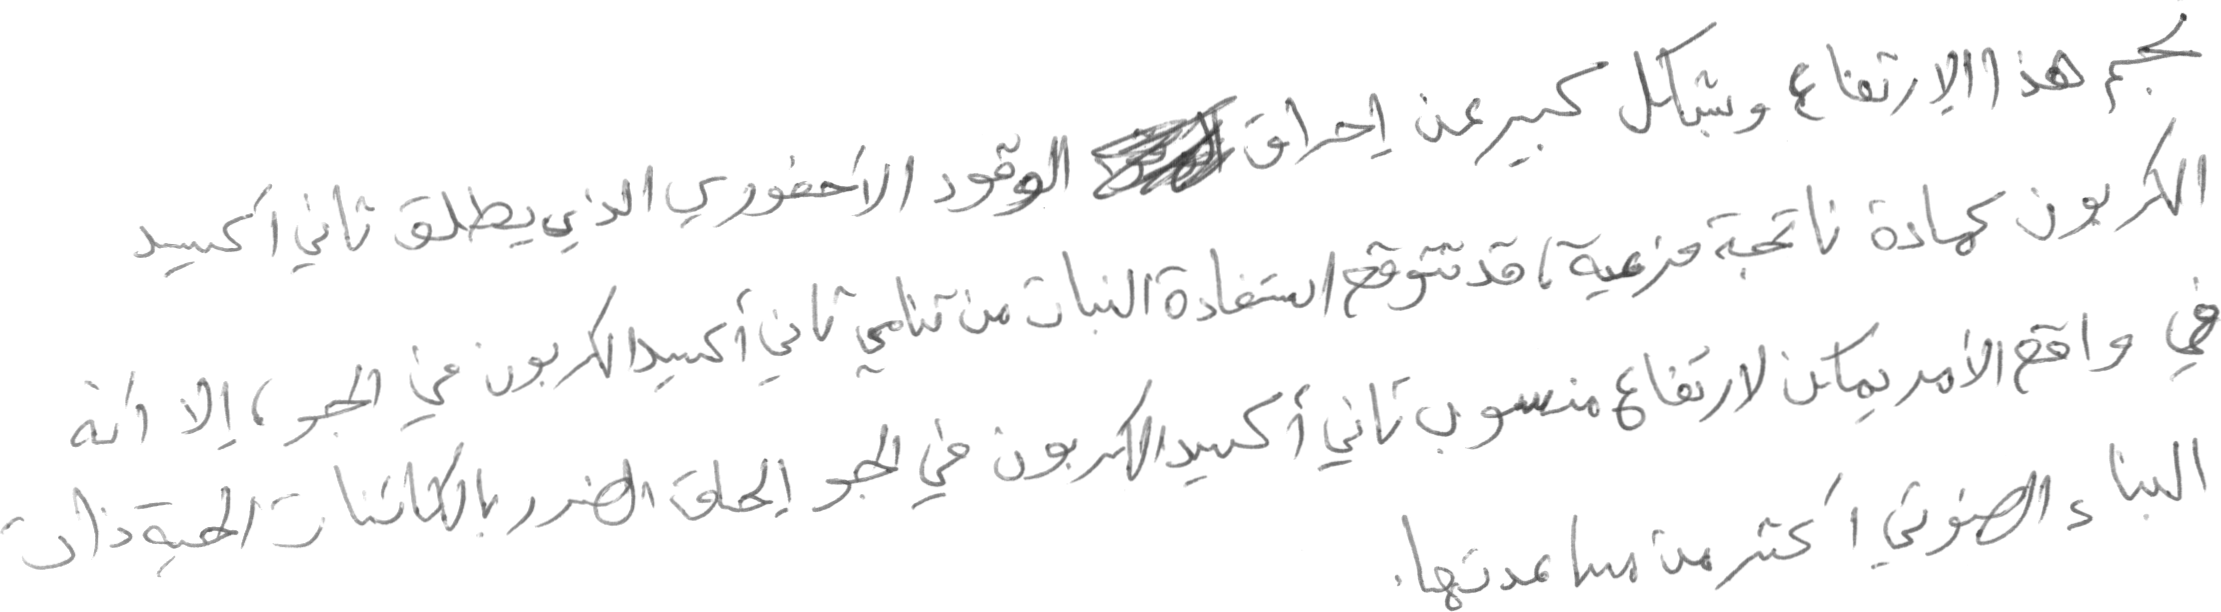 نجم هذا الإرتفاع وبشكل كبير عن إحراق الوقود الأحفوري الذي يطلق ثاني أكسيد
الكربون كمادة ناتجة فرعية، قد تتوقع استفادة النبات من تنامي ثاني أكسيد الكربون في الجو، إلا أنه
في واقع الأمر يمكن لارتفاع منسوب ثاني أكسيد الكربون في الجو إلحاق الضرر بالكائنات الحية ذات
البناء الضوئي أكثر من مساعدتها.